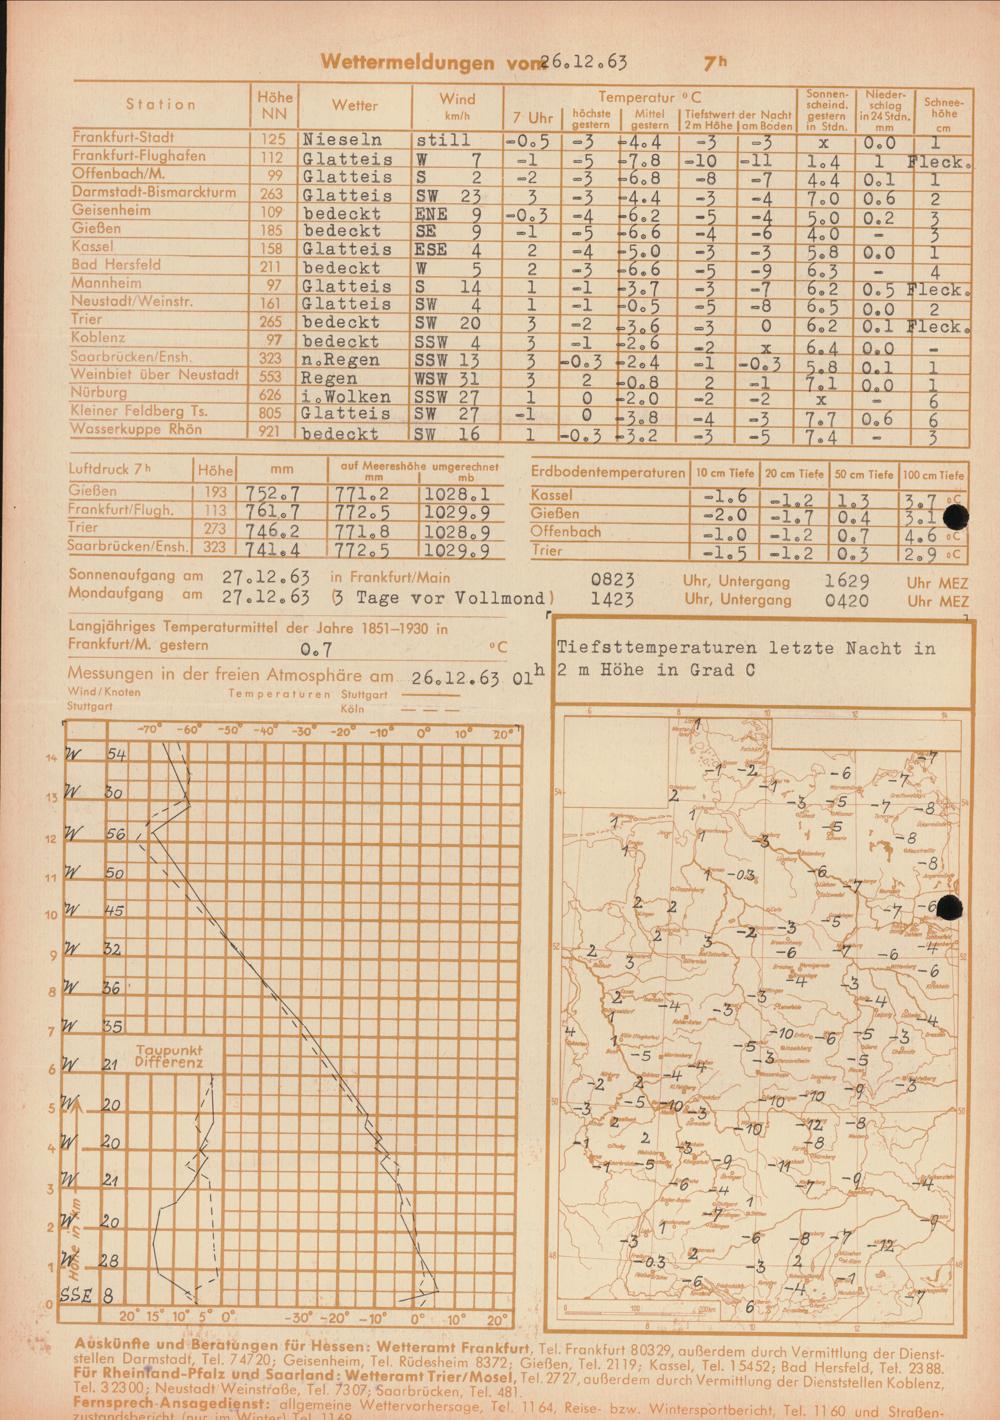 Wettermeldungen vom 26.12.63 7h
Station Höhe NN Wetter Wind km/h Temperatur °C Sonnenscheind. gestern in Stdn. Niederschlag in 24 Stdn. mm Schneehöhe cm
7 Uhr höchste gestern Mittel gestern Tiefstwert der Nacht 2m Höhe am Boden
Frankfurt-Stadt 125 Nieseln still -0.5 -3 -4.4 -3 -3 x 0.0 1
Frankfurt-Flughafen 112 Glatteis W 7 -1 -5 -7.8 -10 -11 1.4 1 Fleck.
Offenbach/M. 99 Glatteis S 2 -2 -3 -6.8 -8 -7 4.4 0.1 1
Darmstadt-Bismarckturm 263 Glatteis SW 23 3 -3 -4.4 -3 -4 7.0 0.6 2
Geisenheim 109 bedeckt ENE 9 -0.3 -4 -6.2 -5 -4 5.0 0.2 3
Gießen 185 bedeckt SE 9 -1 -5 -6.6 -4 -6 4.0 - 3
Kassel 158 Glatteis ESE 4 2 -4 -5.0 -3 -3 5.8 0.0 1
Bad Hersfeld 211 bedeckt W 5 2 -3 -6.6 -5 -9 6.3 - 4
Mannheim 97 Glatteis S 14 1 -1 -3.7 -3 -7 6.2 0.5 Fleck.
Neustadt/Weinstr. 161 Glatteis SW 4 1 -1 -0.5 -5 -8 6.5 0.0 2
Trier 265 bedeckt SW 20 3 -2 -3.6 -3 0 6.2 0.1 Fleck.
Koblenz 97 bedeckt SSW 4 3 -1 -2.6 -2 x 6.4 0.0 -
Saarbrücken/Ensh. 323 n.Regen SSW 13 3 -0.3 -2.4 -1 -0.3 5.8 0.1 1
Weinbiet über Neustadt 553 Regen WSW 31 3 2 -0.8 2 -1 7.1 0.0 1
Nürburg 626 i.Wolken SSW 27 1 0 -2.0 -2 -2 x - 6
Kleiner Feldberg Ts. 805 Glatteis SW 27 -1 0 -3.8 -4 -3 7.7 0.6 6
Wasserkuppe Rhön 921 bedeckt SW 16 1 -0.3 -3.2 -3 -5 7.4 - 3
Luftdruck 7h Höhe mm auf Meereshöhe umgerechnet mm mb
Gießen 193 752.7 771.2 1028.1
Frankfurt/Flugh. 113 761.7 772.5 1029.9
Trier 273 746.2 771.8 1028.9
Saarbrücken/Ensh. 323 741.4 772.5 1029.9
Erdbodentemperaturen 10 cm Tiefe 20 cm Tiefe 50 cm Tiefe 100 cm Tiefe
Kassel -1.6 -1.2 1.3 3.7 °C
Gießen -2.0 -1.7 0.4 3.1
Offenbach -1.0 -1.2 0.7 4.6 °C
Trier -1.5 -1.2 0.3 2.9 °C
Sonnenaufgang am 27.12.63 in Frankfurt/Main 0823 Uhr, Untergang 1629 Uhr MEZ
Mondaufgang am 27.12.63 (3 Tage vor Vollmond) 1423 Uhr, Untergang 0420 Uhr MEZ
Langjähriges Temperaturmittel der Jahre 1851–1930 in
Frankfurt/M. gestern 0.7 °C
Messungen in der freien Atmosphäre am 26.12.63 01h
Wind/Knoten Temperaturen Stuttgart
Stuttgart Köln
-70° -60° -50° -40° -30° -20° -10° 0° 10° 20°
14 W 54
13 W 30
12 W 56
11 W 50
10 W 45
9 W 32
8 W 36
7 W 35
Taupunkt
Differenz
6 W 21
5 W 20
4 W 20
3 W 21
2 W 20
1 W 28
0 SSE 8
Höhe in km
20° 15° 10° 5° 0° -30° -20° -10° 0° 10° 20°
Tiefsttemperaturen letzte Nacht in
2 m Höhe in Grad C
6 8 10 12 14
1
-1 -2 -6 -7
2 -1 -3 -5 -7 -7 -8
1 1 -5 -8
1 1 -3 -8
1 -0.3 -6 -7
2 2 -5 -7 -6
2 3 -2 -3
2 3 -6 -7 -6 -4 -6
2 -4 -3 -3 -4 -3 -4 -4
4 1 1 -5 -5 -10 -6 -5 -3
-3 -5
-2 2 -4 -4 -9 -3
-3 -5 -10 -3 -10 -10
-1 2 2 -3 -10 -12 -8 -8
-1 -5 -9 -11
-6 -4 -7 -9 -4
1 -7 1 -9
-3 -6 -8 -7 -12
-0.3 2 -3 2
-6 -4 -1 -7
6
0 100 200km
Auskünfte und Beratungen für Hessen: Wetteramt Frankfurt, Tel. Frankfurt 80329, außerdem durch Vermittlung der Dienst-
stellen Darmstadt, Tel. 74720; Geisenheim, Tel. Rüdesheim 8372; Gießen, Tel. 2119; Kassel, Tel. 15452; Bad Hersfeld, Tel. 2388.
Für Rheinland-Pfalz und Saarland: Wetteramt Trier/Mosel, Tel. 2727, außerdem durch Vermittlung der Dienststellen Koblenz,
Tel. 32300; Neustadt Weinstraße, Tel. 7307; Saarbrücken, Tel. 481.
Fernsprech-Ansagedienst: allgemeine Wettervorhersage, Tel. 1164, Reise- bzw. Wintersportbericht, Tel. 1160 und Straßen-
zustandsbericht (nur im Winter) Tel. 1169